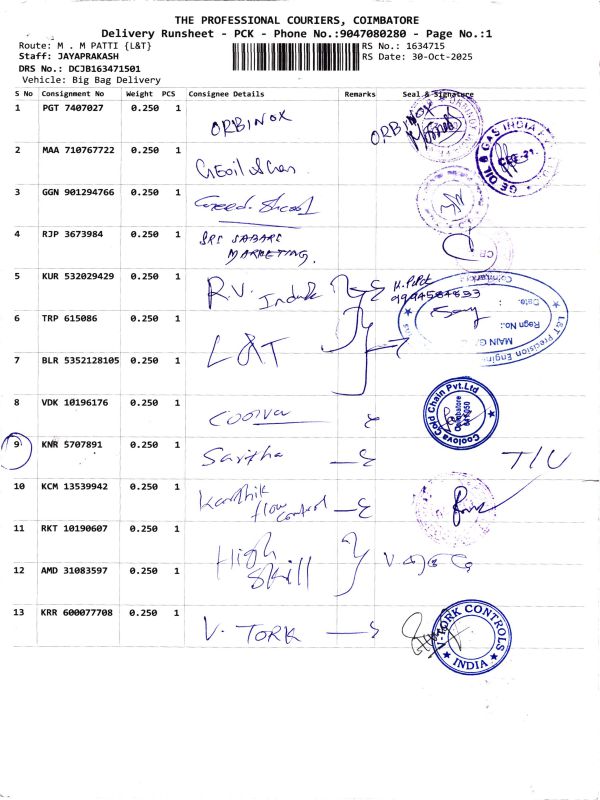 THE PROFESSIONAL COURIERS, COIMBATORE
Delivery Runsheet - PCK - Phone No.:9047080280 - Page No.:1
Route: M . M PATTI {L&T}
RS No.: 1634715
Staff: JAYAPRAKASH
RS Date: 30-Oct-2025
DRS No.: DCJB163471501
Vehicle: Big Bag Delivery
S No Consignment No Weight PCS Consignee Details Remarks Seal & Signature
1 PGT 7407027 0.250 1 ORBINOX ORBINOX
2 MAA 710767722 0.250 1
GE OIL & GAS INDIA
3 GGN 901294766 0.250 1
4 RJP 3673984 0.250 1 SRI SABARI
MARKETING.
5 KUR 532029429 0.250 1 R.V.
6 TRP 615086 0.250 1
L&T Precision Engine
Regn No.:
Date.
7 BLR 5352128105 0.250 1 L&T
8 VDK 10196176 0.250 1 Coolva
Coolova Cold Chain Pvt.Ltd
Coimbatore
9 KNR 5707891 0.250 1 Saritha T/U
10 KCM 13539942 0.250 1 Karthik
flow
control
11 RKT 10190607 0.250 1 High
12 AMD 31083597 0.250 1 Skill
13 KRR 600077708 0.250 1 V. TORK
V-TORK CONTROLS
INDIA